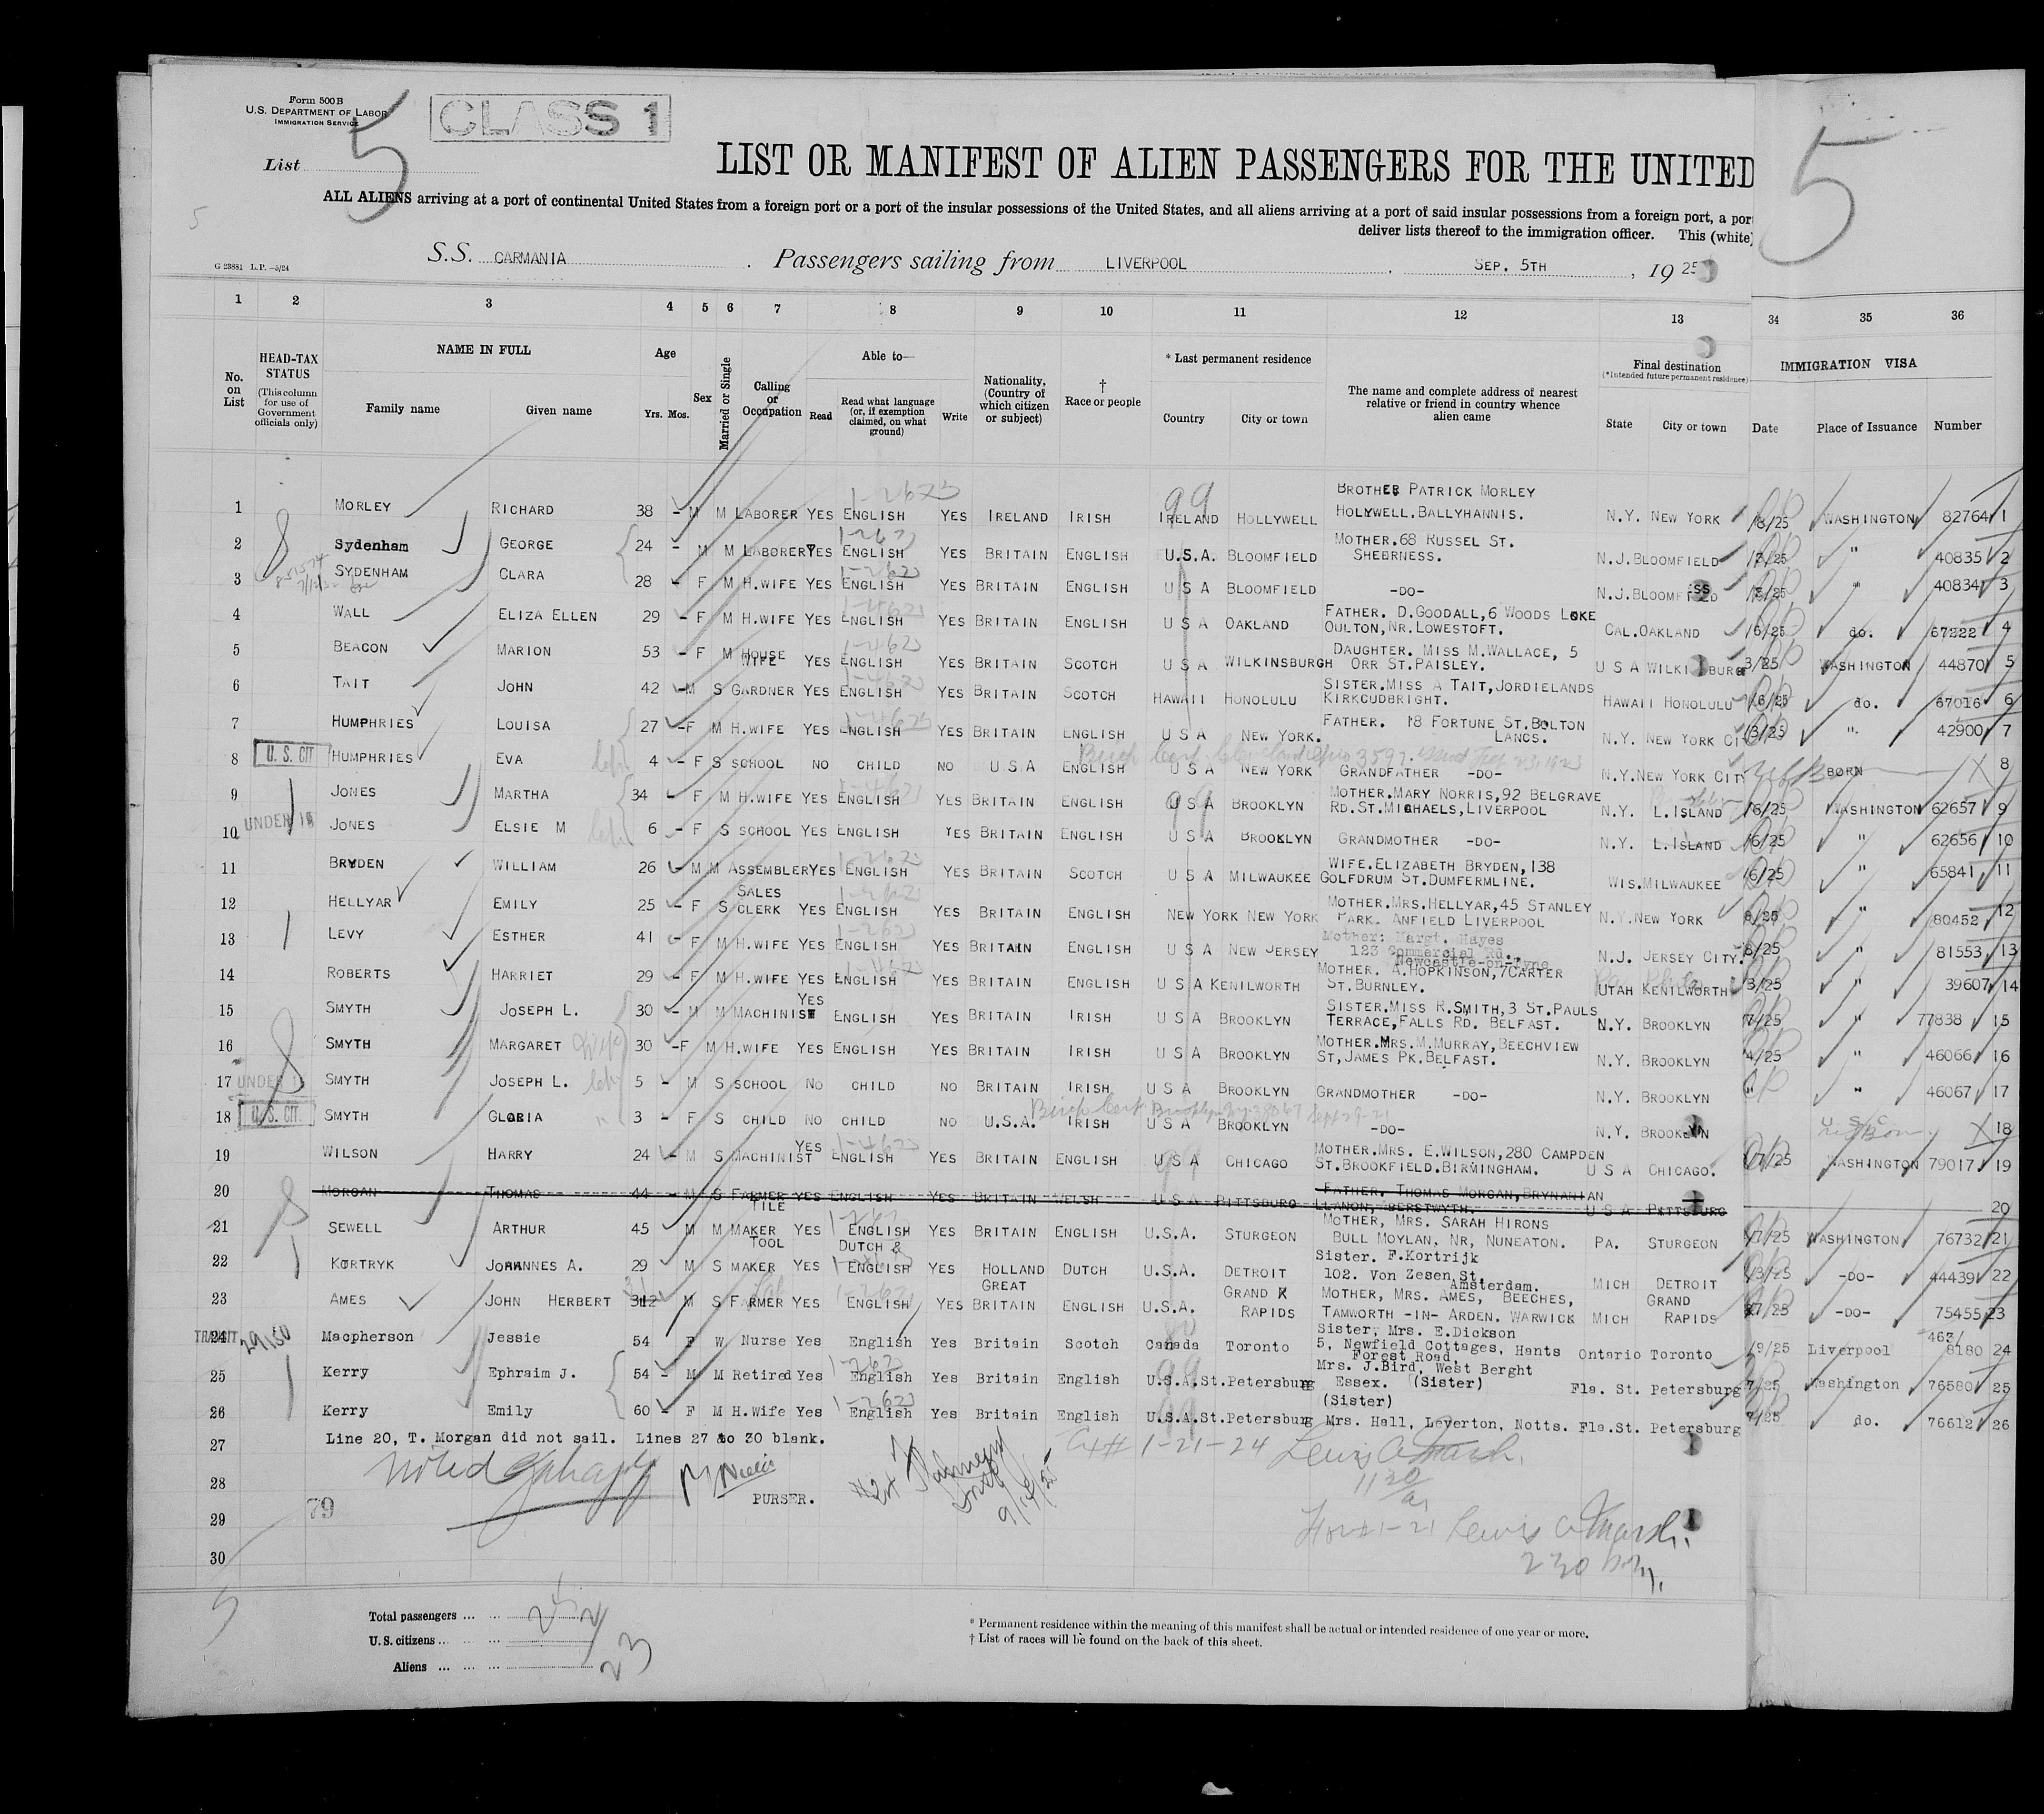 Form 500 B
U.S. DEPARTMENT OF LABOR
IMMIGRATION SERVICE
CLASS 1
List 5
5
LIST OR MANIFEST OF ALIEN PASSENGERS FOR THE UNITED
ALL ALIENS arriving at a port of continental United States from a foreign port or a port of the insular possessions of the United States, and all aliens arriving at a port of said insular possessions from a foreign port, a por
deliver lists thereof to the immigration officer. This (white)
5
G 23881 L.P.—5/24
S.S. CARMANIA. Passengers sailing from LIVERPOOL. SEP. 5TH, 19 25
1 2 3 4 5 6 7 8 9 10 11 12 13 34 35 36
No. on List
HEAD-TAX STATUS (This column for use of Government officials only)
NAME IN FULL
Family name Given name
Age Yrs. Mos.
Sex
Married or Single
Calling or Occupation
Able to—
Read
Read what language (or, if exemption claimed, on what ground)
Write
Nationality, (Country of which citizen or subject)
† Race or people
* Last permanent residence
Country City or town
The name and complete address of nearest relative or friend in country whence alien came
Final destination
(*Intended future permanent residence)
State City or town
IMMIGRATION VISA
Date Place of Issuance Number
1 MORLEY RICHARD 38 - M M LABORER YES ENGLISH YES IRELAND IRISH IRELAND HOLLYWELL BROTHER PATRICK MORLEY HOLYWELL.BALLYHANNIS. N.Y. NEW YORK 8/25 WASHINGTON 82764 1
2 Sydenham GEORGE 24 - M M LABORER YES ENGLISH YES BRITAIN ENGLISH U.S.A. BLOOMFIELD MOTHER.68 RUSSEL ST. SHEERNESS. N.J. BLOOMFIELD /25 " 40835 2
3 SYDENHAM CLARA 28 - F M H.WIFE YES ENGLISH YES BRITAIN ENGLISH U S A BLOOMFIELD -DO- N.J. BLOOMFIELD /25 " 40834 3
4 WALL ELIZA ELLEN 29 - F M H.WIFE YES ENGLISH YES BRITAIN ENGLISH U S A OAKLAND FATHER. D.GOODALL,6 WOODS LOKE OULTON,NR.LOWESTOFT. CAL.OAKLAND 6/25 do. 67222 4
5 BEACON MARION 53 - F M HOUSE WIFE YES ENGLISH YES BRITAIN SCOTCH U S A WILKINSBURGH DAUGHTER. MISS M.WALLACE, 5 ORR ST.PAISLEY. U S A WILKINSBURG 3/25 WASHINGTON 44870 5
6 TAIT JOHN 42 - M S GARDNER YES ENGLISH YES BRITAIN SCOTCH HAWAII HONOLULU SISTER.MISS A TAIT,JORDIELANDS KIRKCUDBRIGHT. HAWAII HONOLULU 6/25 do. 67016 6
7 HUMPHRIES LOUISA 27 - F M H.WIFE YES ENGLISH YES BRITAIN ENGLISH U S A NEW YORK. FATHER. 18 FORTUNE ST.BOLTON LANCS. N.Y. NEW YORK CITY 3/25 " 42900 7
8 U.S. CIT HUMPHRIES EVA 4 - F S SCHOOL NO CHILD NO U.S.A ENGLISH U S A NEW YORK GRANDFATHER -DO- N.Y.NEW YORK CITY BORN X 8
9 JONES MARTHA 34 - F M H.WIFE YES ENGLISH YES BRITAIN ENGLISH U S A BROOKLYN MOTHER.MARY NORRIS,92 BELGRAVE RD.ST.MICHAELS,LIVERPOOL N.Y. L.ISLAND 6/25 WASHINGTON 62657 9
10 UNDER 16 JONES ELSIE M 6 - F S SCHOOL YES ENGLISH YES BRITAIN ENGLISH U S A BROOKLYN GRANDMOTHER -DO- N.Y. L.ISLAND 6/25 " 62656 10
11 BRYDEN WILLIAM 26 - M M ASSEMBLER YES ENGLISH YES BRITAIN SCOTCH U S A MILWAUKEE WIFE.ELIZABETH BRYDEN,138 GOLFDRUM ST.DUMFERMLINE. WIS.MILWAUKEE 6/25 " 65841 11
12 HELLYAR EMILY 25 - F S SALES CLERK YES ENGLISH YES BRITAIN ENGLISH NEW YORK NEW YORK MOTHER.MRS.HELLYAR,45 STANLEY PARK. ANFIELD LIVERPOOL N.Y.NEW YORK 8/25 " 80452 12
13 LEVY ESTHER 41 - F M H.WIFE YES ENGLISH YES BRITAIN ENGLISH U S A NEW JERSEY Mother: Margt. Hayes 123 Commercial Rd., Newcastle-on-Tyne N.J. JERSEY CITY. 8/25 " 81553 13
14 ROBERTS HARRIET 29 - F M H.WIFE YES ENGLISH YES BRITAIN ENGLISH U S A KENILWORTH MOTHER. A.HOPKINSON,7CARTER ST.BURNLEY. UTAH KENILWORTH 3/25 " 39607 14
15 SMYTH JOSEPH L. 30 - M M MACHINIST YES ENGLISH YES BRITAIN IRISH U S A BROOKLYN SISTER.MISS R.SMITH,3 ST.PAULS TERRACE,FALLS RD. BELFAST. N.Y. BROOKLYN 7/25 " 77838 15
16 SMYTH MARGARET 30 - F M H.WIFE YES ENGLISH YES BRITAIN IRISH U S A BROOKLYN MOTHER.MRS.M.MURRAY,BEECHVIEW ST,JAMES PK.BELFAST. N.Y. BROOKLYN 4/25 " 46066 16
17 UNDER 16 SMYTH JOSEPH L. 5 - M S SCHOOL NO CHILD NO BRITAIN IRISH U S A BROOKLYN GRANDMOTHER -DO- N.Y. BROOKLYN " " 46067 17
18 U.S. CIT. SMYTH GLORIA 3 - F S CHILD NO CHILD NO U.S.A. IRISH U S A BROOKLYN -DO- N.Y. BROOKLYN U.S.C. X 18
19 WILSON HARRY 24 - M S MACHINIST YES ENGLISH YES BRITAIN ENGLISH U S A CHICAGO MOTHER.MRS. E.WILSON,280 CAMPDEN ST.BROOKFIELD.BIRMINGHAM. U S A CHICAGO. 7/25 WASHINGTON 79017 19
20 MORGAN THOMAS 44 - M S FARMER YES ENGLISH YES BRITAIN WELSH U S A PITTSBURG FATHER. THOMAS MORGAN,BRYNANIAN LLANON, BERSTWYTH. U S A PITTSBURG 20
21 SEWELL ARTHUR 45 M M TILE MAKER YES ENGLISH YES BRITAIN ENGLISH U.S.A. STURGEON MOTHER, MRS. SARAH HIRONS BULL MOYLAN, NR, NUNEATON. PA. STURGEON 7/25 WASHINGTON 76732 21
22 KORTRYK JOHANNES A. 29 M S TOOL MAKER YES DUTCH & ENGLISH YES HOLLAND DUTCH U.S.A. DETROIT Sister. F.Kortrijk 102. Von Zesen St. Amsterdam. MICH DETROIT 3/25 -DO- 44439 22
23 AMES JOHN HERBERT 31 M S FARMER YES ENGLISH YES GREAT BRITAIN ENGLISH U.S.A. GRAND RAPIDS MOTHER, MRS. AMES, BEECHES, TAMWORTH -IN- ARDEN. WARWICK MICH GRAND RAPIDS 7/25 -DO- 75455 23
24 TRANSIT Macpherson Jessie 54 F W Nurse Yes English Yes Britain Scotch Canada Toronto Sister, Mrs. E.Dickson 5, Newfield Cottages, Hants Forest Road, Ontario Toronto /9/25 Liverpool 463/ 8180 24
25 Kerry Ephraim J. 54 - M M Retired Yes English Yes Britain English U.S.A.St.Petersburg Mrs. J.Bird, West Berght Essex. (Sister) Fla. St. Petersburg 7/25 Washington 76580 25
26 Kerry Emily 60 - F M H.Wife Yes English Yes Britain English U.S.A.St.Petersburg (Sister) Mrs. Hall, Leverton, Notts. Fla.St. Petersburg 7/25 do. 76612 26
27 Line 20, T. Morgan did not sail. Lines 27 to 30 blank.
1-21-24 Lewis A Marsh.
28 noted
PURSER.
79
29 Lewis A Marsh.
30 2 30 P.M.
Total passengers ... ... 25
U.S. citizens ... ... 2
Aliens ... ... ... 23
* Permanent residence within the meaning of this manifest shall be actual or intended residence of one year or more.
† List of races will be found on the back of this sheet.